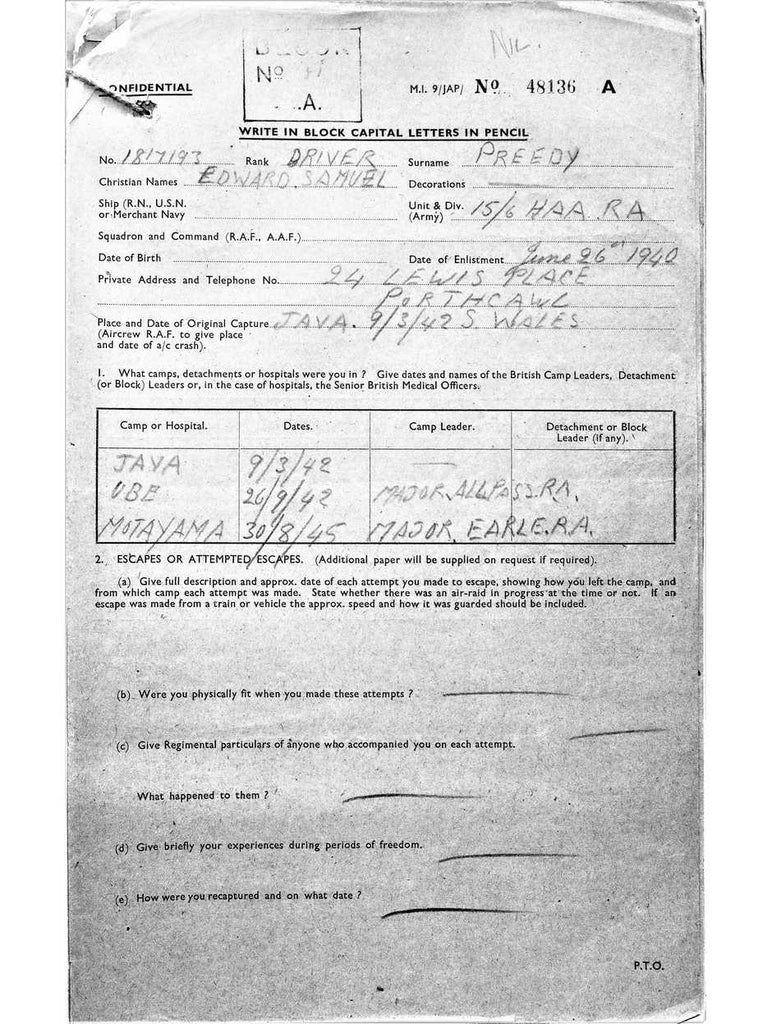 NIL.
CONFIDENTIAL
No
.A.
M.I. 9/JAP/ No. 48136 A
WRITE IN BLOCK CAPITAL LETTERS IN PENCIL
No. 1817193 Rank DRIVER Surname PREEDY
Christian Names EDWARD. SAMUEL Decorations
Ship (R.N., U.S.N. or Merchant Navy
Unit & Div. (Army) 15/6 HAA. RA
Squadron and Command (R.A.F., A.A.F.)
Date of Birth Date of Enlistment June 26th 1940
Private Address and Telephone No. 24 LEWIS PLACE
PORTHCAWL
Place and Date of Original Capture JAVA. 9/3/42 S. WALES
(Aircrew R.A.F. to give place
and date of a/c crash).
1. What camps, detachments or hospitals were you in ? Give dates and names of the British Camp Leaders, Detachment
(or Block) Leaders or, in the case of hospitals, the Senior British Medical Officers.
Camp or Hospital. Dates. Camp Leader. Detachment or Block
Leader (if any).
JAVA 9/3/42
UBE 26/9/42 MAJOR. ALLPASS. RA.
MOTAYAMA 30/8/45 MAJOR. EARLE. R.A.
2. ESCAPES OR ATTEMPTED ESCAPES. (Additional paper will be supplied on request if required).
(a) Give full description and approx. date of each attempt you made to escape, showing how you left the camp, and
from which camp each attempt was made. State whether there was an air-raid in progress at the time or not. If an
escape was made from a train or vehicle the approx. speed and how it was guarded should be included.
(b) Were you physically fit when you made these attempts ?
(c) Give Regimental particulars of anyone who accompanied you on each attempt.
What happened to them ?
(d) Give briefly your experiences during periods of freedom.
(e) How were you recaptured and on what date ?
P.T.O.